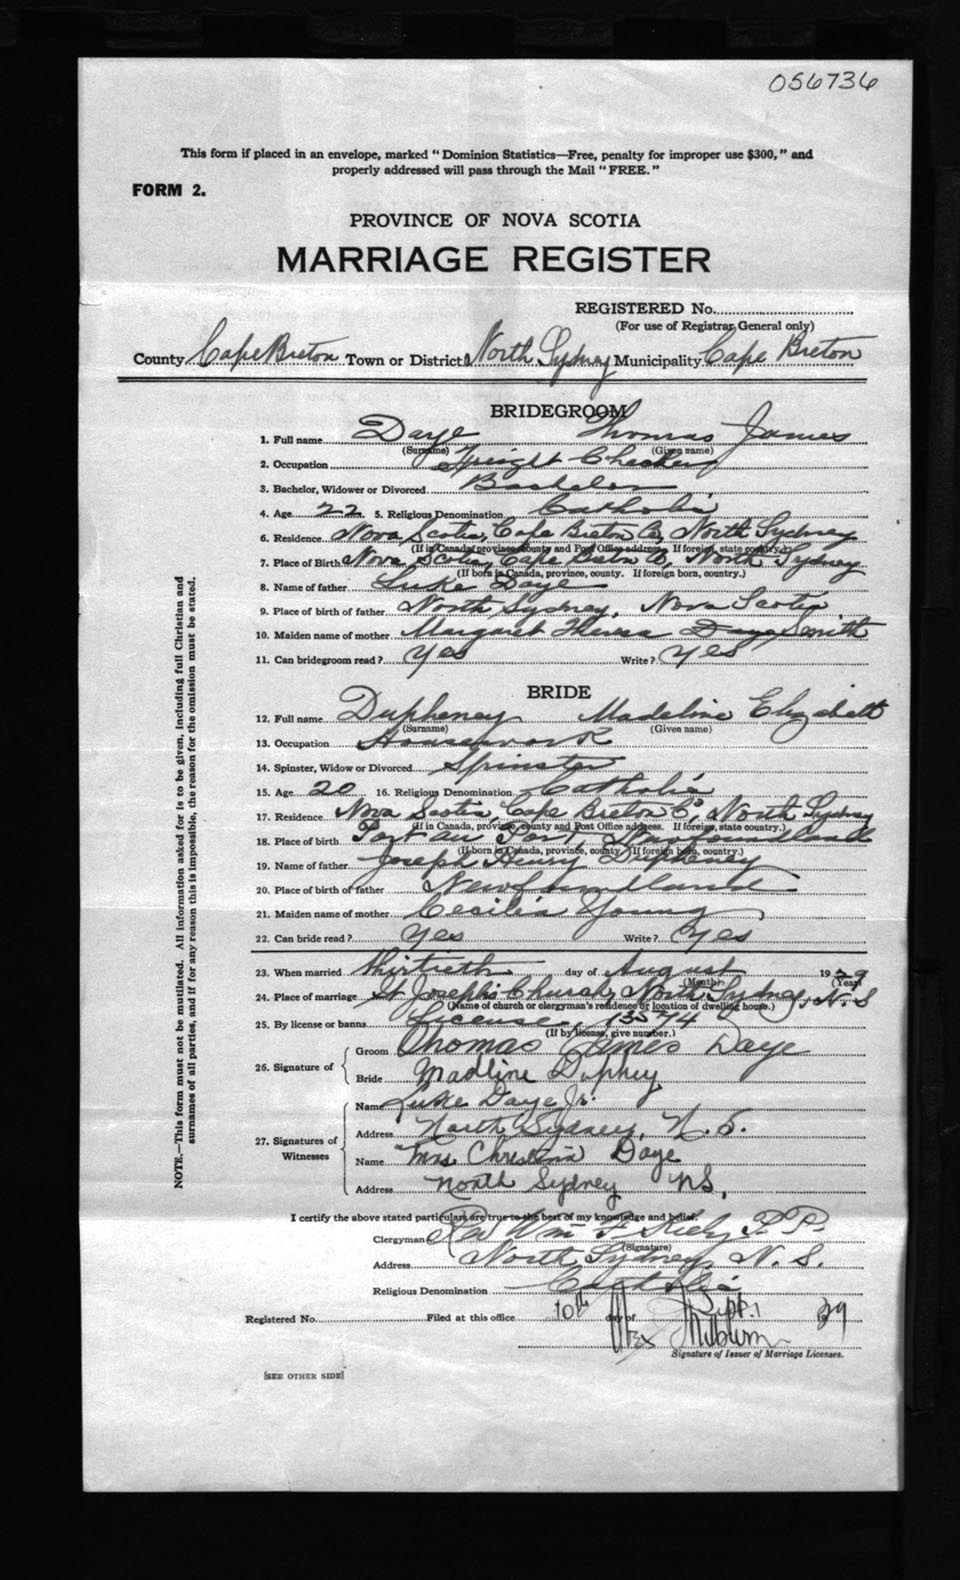 056736
This form if placed in an envelope, marked "Dominion Statistics—Free, penalty for improper use $300," and
properly addressed will pass through the Mail "FREE."
FORM 2.
PROVINCE OF NOVA SCOTIA
MARRIAGE REGISTER
REGISTERED No.
(For use of Registrar General only)
County Cape Breton Town or District North Sydney Municipality Cape Breton
BRIDEGROOM
1. Full name Daye Thomas James
(Surname) (Given name)
2. Occupation Freight Checker
3. Bachelor, Widower or Divorced Bachelor
4. Age 22 5. Religious Denomination Catholic
6. Residence Nova Scotia, Cape Breton Co, North Sydney
(If in Canada, province, county and Post Office address. If foreign, state country.)
7. Place of Birth Nova Scotia, Cape Breton Co, North Sydney
(If born in Canada, province, county. If foreign born, country.)
8. Name of father Luke Daye
9. Place of birth of father North Sydney, Nova Scotia
10. Maiden name of mother Margaret Theresa Daye Smith
11. Can bridegroom read? Yes Write? Yes
BRIDE
12. Full name Dupheney Madeline Elizabeth
(Surname) (Given name)
13. Occupation Housework
14. Spinster, Widow or Divorced Spinster
15. Age 20 16. Religious Denomination Catholic
17. Residence Nova Scotia, Cape Breton Co, North Sydney
(If in Canada, province, county and Post Office address. If foreign, state country.)
18. Place of birth Port au Port, Newfoundland
(If born in Canada, province, county. If foreign born, country.)
19. Name of father Joseph Henry Dupheney
20. Place of birth of father Newfoundland
21. Maiden name of mother Cecilia Young
22. Can bride read? Yes Write? Yes
23. When married thirtieth day of August 1929
(Month) (Year)
24. Place of marriage St Joseph's Church, North Sydney, N.S
(Name of church or clergyman's residence or location of dwelling house.)
25. By license or banns License 13574
(If by license, give number.)
26. Signature of Groom Thomas James Daye
Bride Madline Duphey
27. Signatures of Witnesses
Name Luke Daye Jr.
Address North Sydney, N.S.
Name Mrs Christina Daye
Address North Sydney NS,
I certify the above stated particulars are true to the best of my knowledge and belief.
Clergyman Rev Wm F Kiely P.P.
(Signature)
Address North Sydney, N.S.
Religious Denomination Catholic
Registered No. Filed at this office 10th day of Sept. 1929
Alex
Signature of Issuer of Marriage Licenses.
[SEE OTHER SIDE]
NOTE.—This form must not be mutilated. All information asked for is to be given, including full Christian and
surnames of all parties, and if for any reason this is impossible, the reason for the omission must be stated.